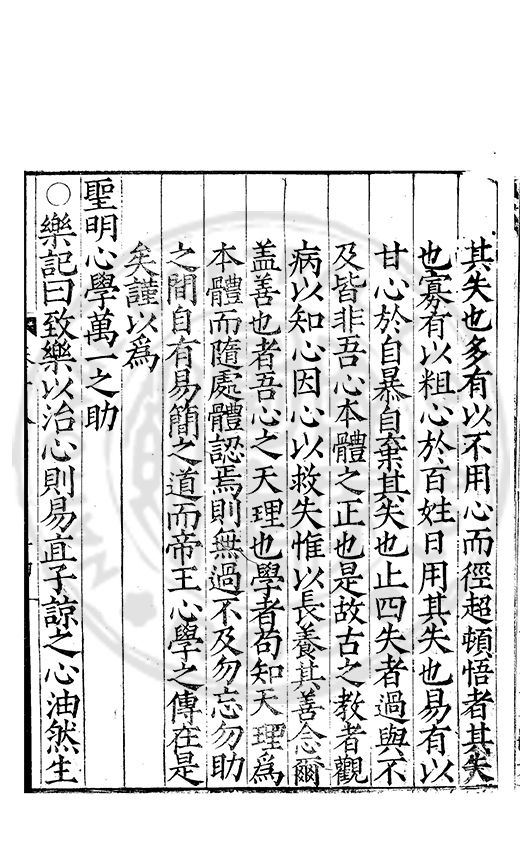 其失也多有以不用心而徑超頓悟者其失
也寡有以粗心於百姓日用其失也易有以
甘心於自暴自棄其失也止四失者過與不
及皆非吾心本體之正也是故古之教者觀
病以知心因心以救失惟以長養其善念爾
盖善也者吾心之天理也學者苟知天理爲
本體而隨處體認焉則無過不及勿忘勿助
之間自有易簡之道而帝王心學之傳在是
矣謹以爲
聖明心學萬一之助
○樂記曰致樂以治心則易直子諒之心油然生